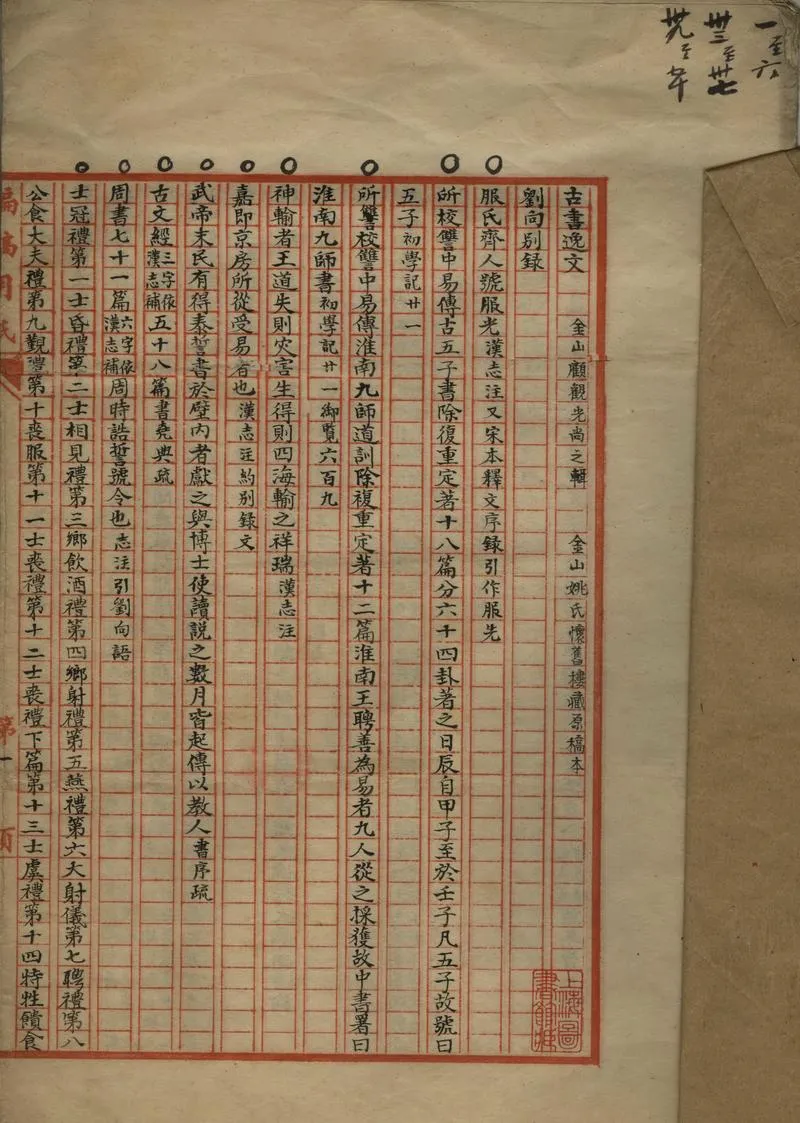 一至六
卅三至卅七
古書逸文 金山顧觀光尚之輯 金山姚氏懷舊樓藏原稿本
劉向別録
服氏齊人號服光漢志注又宋本釋文序録引作服先
所校讐中易傳古五子書除復重定著十八篇分六十四卦著之日辰自甲子至於壬子凡五子故號曰
五子初學記廿一
所讐校讐中易傳淮南九師道訓除複重定著十二篇淮南王聘善為易者九人從之採獲故中書署曰
淮南九師書初學記廿一御覽六百九
神輸者王道失則灾害生得則四海輸之祥瑞漢志注
嘉即京房所從受易者也漢志注約別録文
武帝末民有得泰誓書於壁內者獻之與博士使讀説之數月皆起傳以教人書序疏
古文經三字依漢志補五十八篇書堯典疏
周書七十一篇六字依漢志補周時誥誓號令也志注引劉向語
士冠禮第一士昏禮第二士相見禮第三鄉飲酒禮第四鄉射禮第五燕禮第六大射儀第七聘禮第八
公食大夫禮第九覲禮第十喪服第十一士喪禮第十二士喪禮下篇第十三士虞禮第十四特牲饋食
上海圖書館藏
第一頁